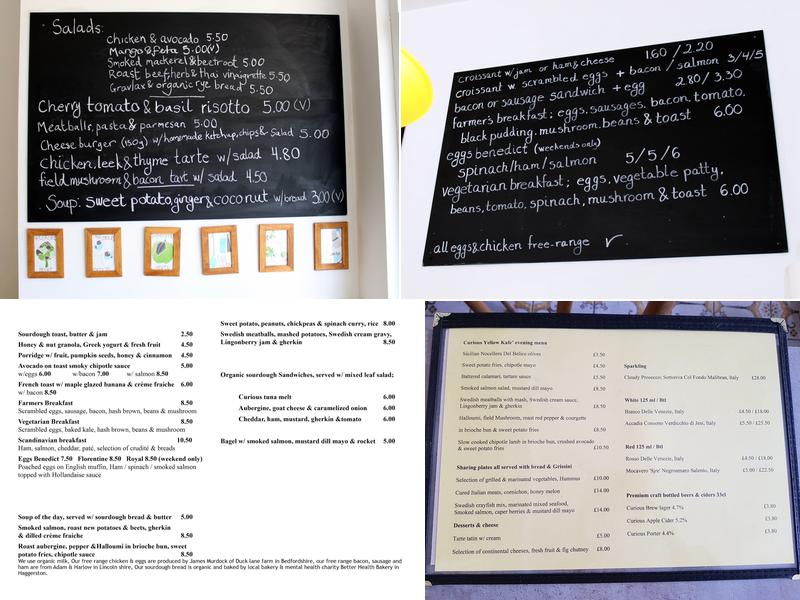 Salads:
Chicken & avocado 5.50
Mango & feta 5.00 (v)
Smoked mackerel & beetroot 5.00
Roast beef, herb & thai vinaigrette 5.50
Gravlax & organic rye bread 5.50
Cherry tomato & basil risotto 5.00 (v)
Meatballs, pasta & parmesan 5.00
Cheese burger (150g) w/homemade ketchup, chips & Salad 5.00
Chicken, leek & thyme tarte w/ salad 4.80
field mushroom & bacon tart w/ salad 4.50
Soup: sweet potato, ginger & coconut w/bread 3.00 (v)
croissant w/jam or ham & cheese 1.60 / 2.20
croissant w. scrambled eggs + bacon / salmon 3/4/5
bacon or sausage sandwich + egg 2.80 / 3.30
farmer's breakfast; eggs, sausages, bacon, tomato,
black pudding, mushroom, beans & toast 6.00
eggs benedict (weekends only)
spinach/ham/salmon 5/5/6
vegetarian breakfast; eggs, vegetable patty,
beans, tomato, spinach, mushroom & toast 6.00
all eggs & chicken free-range
Sourdough toast, butter & jam 2.50
Honey & nut granola, Greek yogurt & fresh fruit 4.50
Porridge w/ fruit, pumpkin seeds, honey & cinnamon 4.50
Avocado on toast smoky chipotle sauce 5.00
w/eggs 6.00 w/bacon 7.00 w/ salmon 8.50
French toast w/ maple glazed banana & crème fraiche 6.00
w/ bacon 8.50
Farmers Breakfast 8.50
Scrambled eggs, sausage, bacon, hash brown, beans & mushroom
Vegetarian Breakfast 8.50
Scrambled eggs, baked kale, hash brown, beans & mushroom
Scandinavian breakfast 10.50
Ham, salmon, cheddar, paté, selection of crudité & breads
Eggs Benedict 7.50 Florentine 8.50 Royal 8.50 (weekend only)
Poached eggs on English muffin, Ham / spinach / smoked salmon
topped with Hollandaise sauce
Soup of the day, served w/ sourdough bread & butter 5.00
Smoked salmon, roast new potatoes & beets, gherkin
& dilled crème fraiche 8.50
Roast aubergine, pepper &Halloumi in brioche bun, sweet
potato fries, chipotle sauce 8.50
Sweet potato, peanuts, chickpeas & spinach curry, rice 8.00
Swedish meatballs, mashed potatoes, Swedish cream gravy,
Lingonberry jam & gherkin 8.50
Organic sourdough Sandwiches, served w/ mixed leaf salad;
Curious tuna melt 6.00
Aubergine, goat cheese & caramelized onion 6.00
Cheddar, ham, mustard, gherkin &tomato 6.00
Bagel w/ smoked salmon, mustard dill mayo & rocket 5.00
We use organic milk, Our free range chicken & eggs are produced by James Murdock of Duck lane farm in Bedfordshire, our free range bacon, sausage and
ham are from Adam & Harlow in Lincoln shire, Our sourdough bread is organic and baked by local bakery & mental health charity Better Health Bakery in
Haggerston.
Curious Yellow Kafe' evening menu
Sicilian Nocellera Del Belice olives £3.50
Sweet potato fries, chipotle mayo £4.50
Battered calamari, tartare sauce £5.50
Smoked salmon salad, mustard dill mayo £8.50
Swedish meatballs with mash, Swedish cream sauce,
Lingonberry jam & gherkin £8.50
Halloumi, field Mushroom, roast red pepper & courgette
in brioche bun & sweet potato fries £8.50
Slow cooked chipotle lamb in brioche bun, crushed avocado
& sweet potato fries £10.50
Sharing plates all served with bread & Grissini
Selection of grilled & marinated vegetables, Hummus £10.00
Cured Italian meats, cornichon, honey melon £14.00
Swedish crayfish mix, marinated mixed seafood,
Smoked salmon, caper berries & mustard dill mayo £14.00
Desserts & cheese
Tarte tatin w/ cream £5.00
Selection of continental cheeses, fresh fruit & fig chutney £8.00
Sparkling
Cloudy Prosecco, Sottoriva Col Fondo Malibran, Italy £28.00
White 125 ml / Btl
Bianco Delle Venezie, Italy £4.50 / £18.00
Accadia Consorno Verdicchio di Jesi, Italy £5.50 / £25.50
Red 125 ml / Btl
Rosso Delle Venezie, Italy £4.50 / £18.00
Mocavero 'Sjre' Negroamaro Salento, Italy £5.00 / £22.50
Premium craft bottled beers & ciders 33cl
Curious Brew lager 4.7% £3.80
Curious Apple Cider 5.2% £3.80
Curious Porter 4.4% £3.80